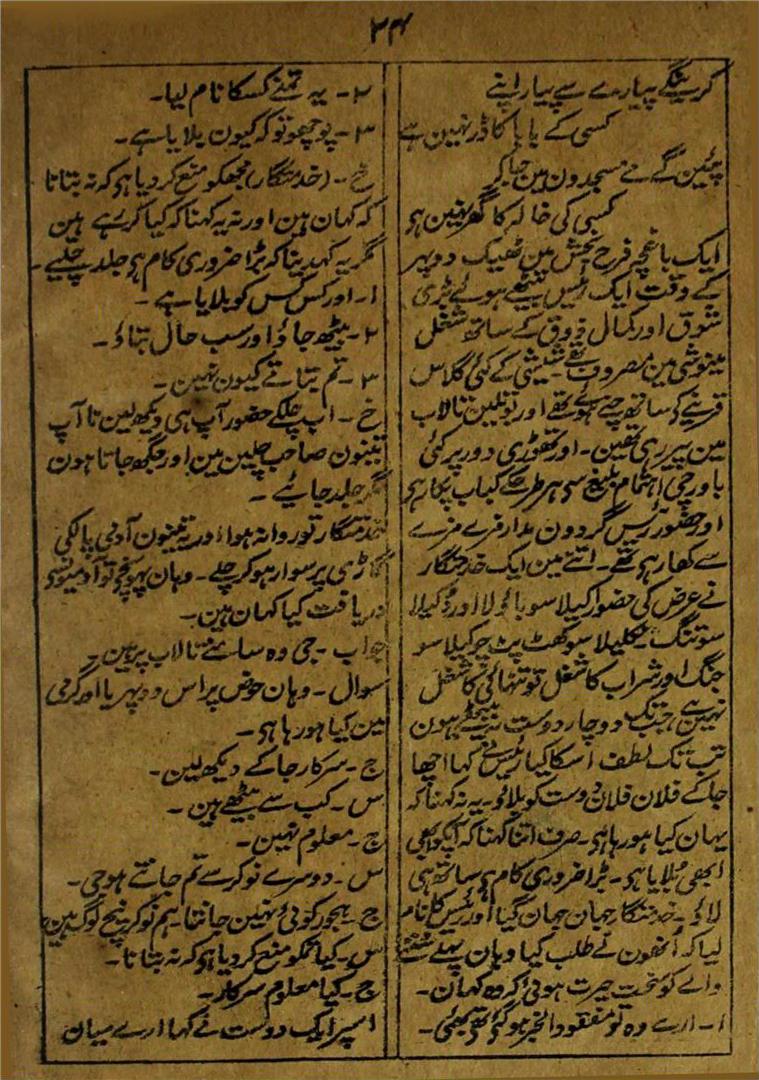 ۲۴
کرینگے پیارے سے پیار اپنے
کسی کے بابا کا ڈر نہین ہے
پئین گے مے مسجدون مین جا کر
کسی کی خالہ کا گھر نہین ہو
ایک باغچہ فرح بخش مین ٹھیک دوپہر
کے وقت ایک رئیس بیٹھے ہوئے بڑی
شوق اور کمال ذوق کے ساتھ شغل
مینوشی مین مصروف تھے شیشی کے کئی گلاس
قرینے کو ساتھ چنے ہوئے تھے اور بوتلین تالاب
مین پیر رہی تھین۔ اور تھوڑی دور پر کئی
باورچی اہتمام بلیغ سی ہر طرح کے کباب پکا رہی
اور حضور رئیس گردون مدار مزے مزے
سے کھا رہی تھے۔ اتنے مین ایک خدمتگار
نے عرض کی حضور اکیلا سو باؤلا اور دُکیلا
سو تنگ تکلیلا سو کھٹ پٹ چوکیلا سو
جنگ اور شراب کا شغل تو تنہائی کا شغل
نہین ہے جب تک دو چار دوست نہ بیٹھے ہون
تب تک لطف اسکا کیا۔ رئیس نے کہا اچھا
جا کے فلان فلان دوست کو بلا لاؤ۔ یہ نہ کہنا کہ
یہان کیا ہو رہا ہی۔ صرف اتنا کہنا کہ آپکو ابھی
ابھی بُلایا ہی۔ بڑا ضروری کام ہی ساتھ ہی
لاؤ۔ خدمتگار جہان جہان گیا اور رئیس کا نام
لیا کہ اُنھون نے طلب کیا وہان پہلے سننے
والے کو سخت حیرت ہوئی کہ وہ کہان۔
ا۔ ارے وہ تو مفقود الخبر ہو گئے تھے بھئی۔
۲۔ یہ تمنے کسکا نام لیا۔
۳۔ پوچھو تو کہ کیون بلایا ہے۔
خ۔ (خدمتگار) مجھکو منع کر دیا ہو کہ نہ بتانا
کہ کہان ہین اور نہ یہ کہنا کہ کیا کر رہے ہین
مگر یہ کہدینا کہ بڑا ضروری کام ہو جلد چلیے۔
ا۔ اور کس کس کو بلایا ہے۔
۲۔ بیٹھ جاؤ اور سب حال بتاؤ۔
۳۔ تم بتاتے کیون نہین۔
خ۔ اب چلکے حضور آپ ہی دیکھ لین تا آپ
تینون صاحب چلین مین اور جگہ جاتا ہون
مگر جلد جائیے۔
خدمتگار تو روانہ ہوا اور یہ تینون آدمی پالکی
گاڑی پر سوار ہو کر چلے۔ وہان پہونچے تو آدمیونسے
دریافت کیا کہان ہین۔
جواب۔ جی وہ سامنے تالاب پر ہین۔
سوال۔ وہان حوض پر اس دوپہریا اور گرمی
مین کیا ہو رہا ہی۔
ج۔ سرکار جا کے دیکھ لین۔
س۔ کب سے بیٹھے ہین۔
ج۔ معلوم نہین۔
س۔ دوسرے نوکر سے تم جانتے ہو جی۔
ج۔ ہجور کوئی نہین جانتا ہم نوکر نیچ لوگ ہین
س۔ کیا تمکو منع کر دیا ہو کہ نہ بتانا۔
ج۔ کیا معلوم سرکار۔
اسپر ایک دوست نے کہا ارے میان